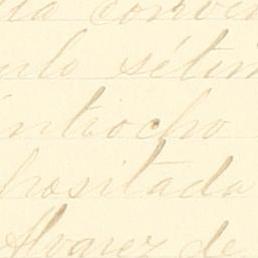 da conven
ulo sétim
intiocho
positada
Alvarez de